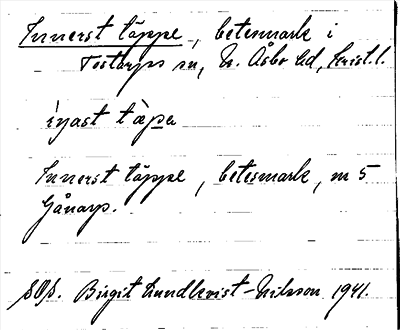 Innerst täppe, betesmark i
Tostarps sn, N. Åsbo hd, Krist. l.
iṇast tàpa
Innerst täppe, betesmark, m 5
Gånarp.
SOß. Birgit Lundkvist-Nilsson 1941.